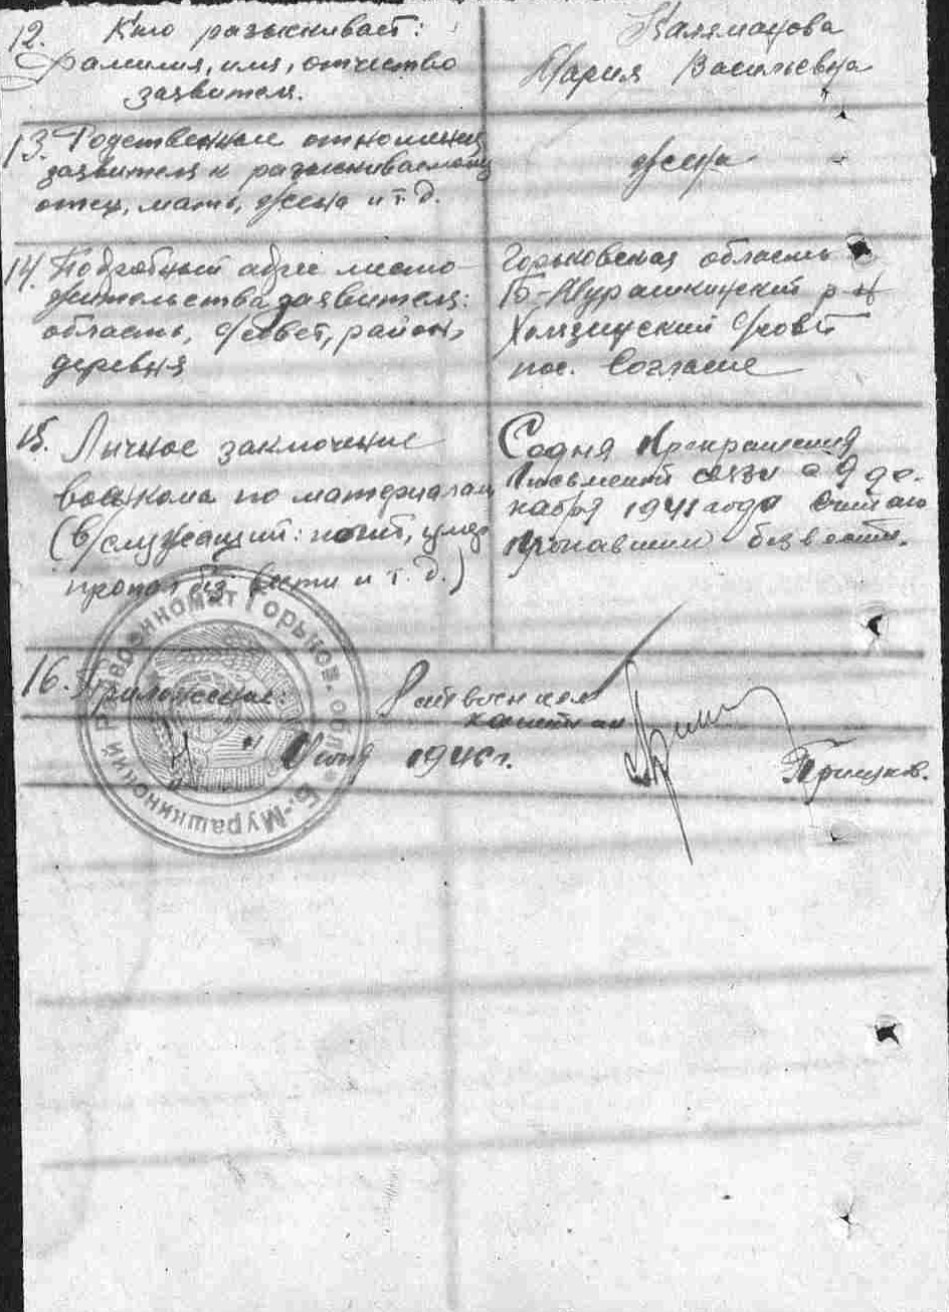 12. Кто разыскивает:
фамилия, имя, отчество
заявителя.
Мария Васильевна
13. Родственное отношение
заявителя к разыскиваемому
отец, мать, жена и т.д.
жена
14. Подробный адрес место-
жительства заявителя:
область, с/совет, район,
деревня
Горьковская область
Б-Мурашкинский р-н
Холязинский с/совет
пос. Согласие
15. Личное заключение
военкома по материалам
(в/служащий: погиб, умер
пропал без вести и т.д.)
Со дня прекращения
письменной связи с 9 де-
кабря 1941 года считаю
пропавшим без вести.
16. Приложение:
Райвоенком
капитан
1946 г.
Б.-Мурашкинский Райвоенкомат Горьков. обл.